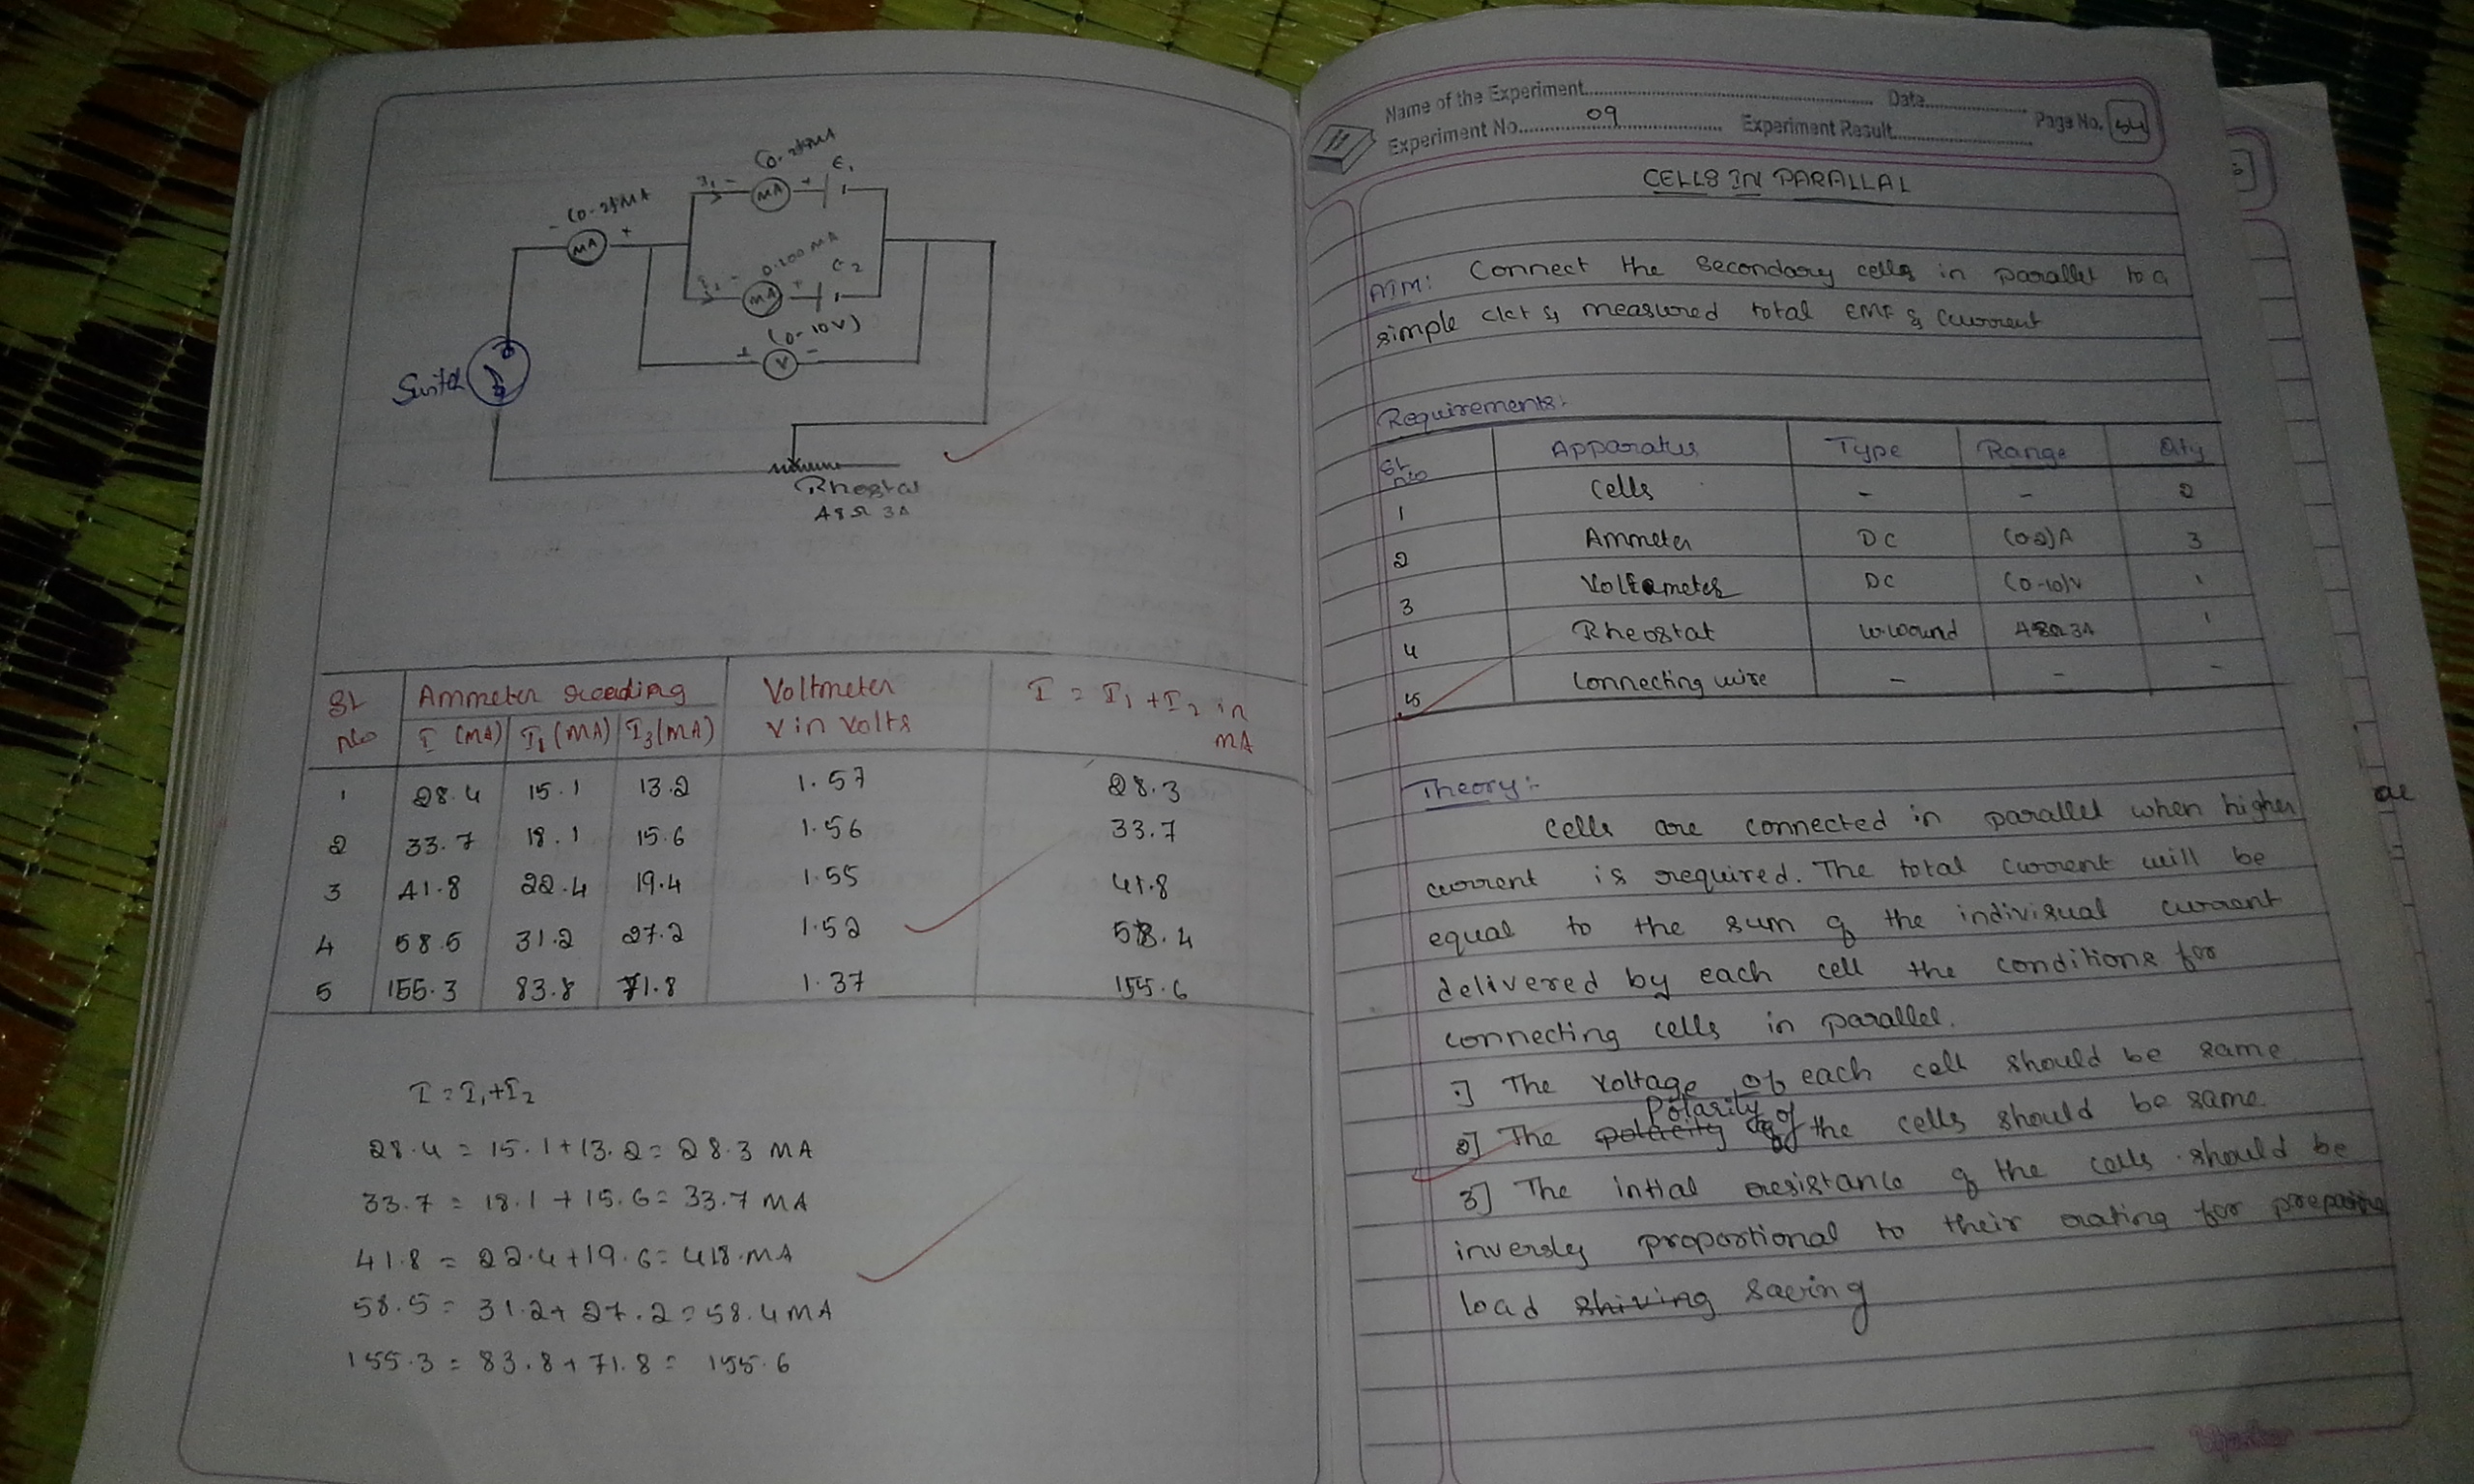 (0-2)MA
I1 - MA + E1
(0-2)MA
- MA +
0-200 MA
I2 - MA + E2
(0-10V)
+ V -
Switch
Rhostat
48Ω 3A
SL No
Ammeter reading
Voltmeter V in volts
I = I1 + I2 in MA
I (MA) I1 (MA) I3 (MA)
1 28.4 15.1 13.2 1.57 28.3
2 33.7 18.1 15.6 1.56 33.7
3 41.8 22.4 19.4 1.55 41.8
4 58.5 31.2 27.2 1.52 58.4
5 155.3 83.8 71.8 1.37 155.6
I = I1+I2
28.4 = 15.1+13.2= 28.3 MA
33.7 = 18.1 + 15.6= 33.7 MA
41.8 = 22.4+19.6= 418.MA
58.5= 31.2+ 27.2=58.4MA
155.3= 83.8+71.8= 155.6
Name of the Experiment Date
Experiment No. 09 Experiment Result Page No. 54
CELLS IN PARALLAL
AIM: Connect the secondary cells in parallel to a
simple cket & measured total EMF & Current
Requirements:
SL No Apparatus Type Range Qty
1 Cells - - 2
2 Ammeter DC (0-2)A 3
3 Voltameter DC (0-10)V 1
4 Rheostat w.wound 48Ω3A 1
5 Connecting wire - - -
Theory:-
Cells are connected in parallel when higher
current is required. The total current will be
equal to the sum of the indivisual current
delivered by each cell the conditions for
connecting cells in parallel.
1] The Voltage of each cell should be same
2] The polacity Polarity of the cells should be same
3] The intial resistance of the cells should be
inversly proportional to their rating for
load shiving saering